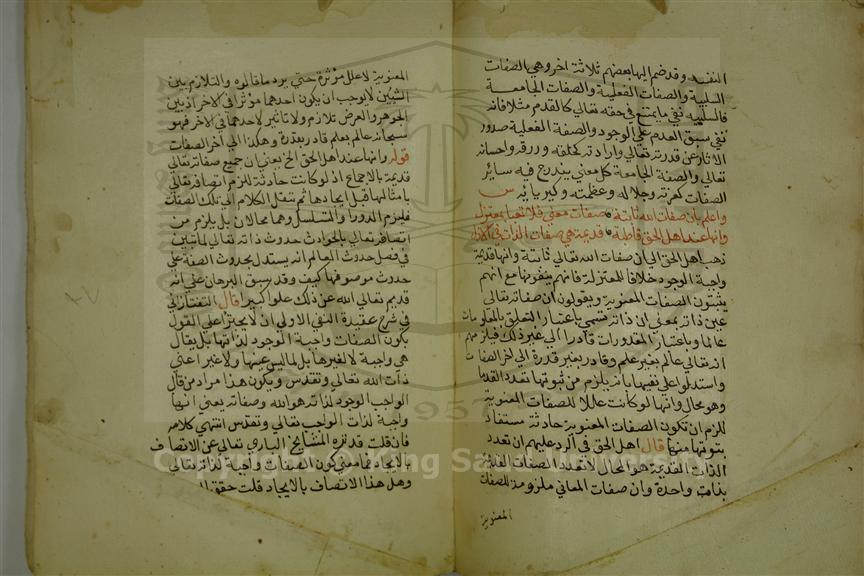 النفسية وقد ضم اليها بعضهم ثلاثة اخر وهي الصفات
السلبية والصفات الفعلية والصفات الجامعة
فالسلبية نفي ما يمتنع في حقه تعالى كالقدم مثلا فانه
نفي سبق العدم على الوجود والصفة الفعلية صدور
الاثار عن قدرته تعالى وارادته كخلقه ورزقه واحسانه
تعالى والصفة الجامعة كل معنى يندرج فيه سائر
الصفات كعزته وجلاله وعظمته وكبريائه س
واعلم بان صفات الله ثابتة صفات معنى فلا تعبا بمعتزل
وانها عند اهل الحق قاطبة قديمة هي صفات الذات في الازل
ذهب اهل الحق الى ان صفات الله تعالى ثابتة وانها قديمة
واجبة الوجود خلافا للمعتزلة فانهم ينفونها مع انهم
يثبتون الصفات المعنوية ويقولون ان صفاته تعالى
عين ذاته بمعنى ان ذاته تسمى باعتبار التعلق بالمعلومات
عالما وباعتبار المقدورات قادرا الى غير ذلك فيلزمهم
انه تعالى عالم بغير علم وقادر بغير قدرة الى اخر الصفات
واستدلوا على نفيها بانه يلزم من ثبوتها تعدد القدما
وهو محال وانها لو كانت عللا للصفات المعنوية
للزم ان تكون الصفات المعنوية حادثة مستفاد
ثبوتها منها قال اهل الحق في الرد عليهم ان تعدد
الذات القديمة هو المحال لا تعدد الصفات القائمة
بذات واحدة وان صفات المعاني ملزومة للصفات
المعنوية
المعنوية لا علل مؤثرة حتى يرد ما قالوه والتلازم بين
الشيئين لا يوجب ان يكون احدهما مؤثرا في الاخر اذ بين
الجوهر والعرض تلازم ولا تاثير لاحدهما في الاخر فهو
سبحانه عالم بعلم قادر بقدرة وهكذا الى آخر الصفات
قوله وانها عند اهل الحق الخ يعني ان جميع صفاته تعالى
قديمة بالاجماع اذ لو كانت حادثة للزم اتصافه تعالى
بامثالها قبل ايجادها ثم ننقل الكلام الى تلك الصفات
فيلزم الدور او التسلسل وهما محالان بل يلزم من
اتصافه تعالى بالحوادث حدوث ذاته تعالى لما تبين
في فصل حدوث العالم انه يستدل بحدوث الصفة على
حدوث موصوفها كيف وقد سبق البرهان على انه
قديم تعالى الله عن ذلك علوا كبيرا قال التفتازاني
في شرح عقيدة النسفي الاولى ان لا يجترا على القول
بكون الصفات واجبة الوجود لذاتها بل يقال
هي واجبة لا لغيرها بل لما ليس عينها ولا غيرها اعني
ذات الله تعالى وتقدس ويكون هذا مراد من قال
الواجب الوجود لذاته هو الله وصفاته يعني انها
واجبة لذات الواجب تعالى وتقدس انتهى كلامه
فان قلت قد نزه المشايخ الباري تعالى عن الاتصاف
بالايجاد فما معنى كون الصفات واجبة لذاته تعالى
وهل هذا الا اتصاف بالايجاد قلت حقق
Copyright © King Saud University
1957